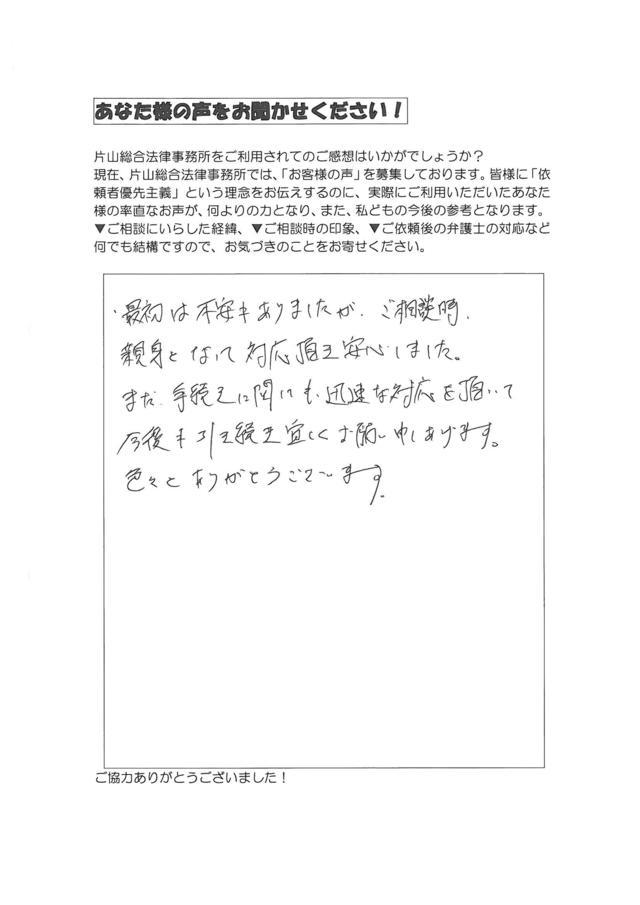 あなた様の声をお聞かせください！
片山総合法律事務所をご利用されてのご感想はいかがでしょうか？
現在、片山総合法律事務所では、「お客様の声」を募集しております。皆様に「依
頼者優先主義」という理念をお伝えするのに、実際にご利用いただいたあなた
様の率直なお声が、何よりの力となり、また、私どもの今後の参考となります。
▼ご相談にいらした経緯、▼ご相談時の印象、▼ご依頼後の弁護士の対応など
何でも結構ですので、お気づきのことをお寄せください。
・最初は不安もありましたが、ご相談時、
親身となって対応頂き安心しました。
また、手続きに関しても、迅速な対応を頂いて
今後も引き続き宜しくお願い申しあげます。
色々とありがとうございます。
ご協力ありがとうございました！